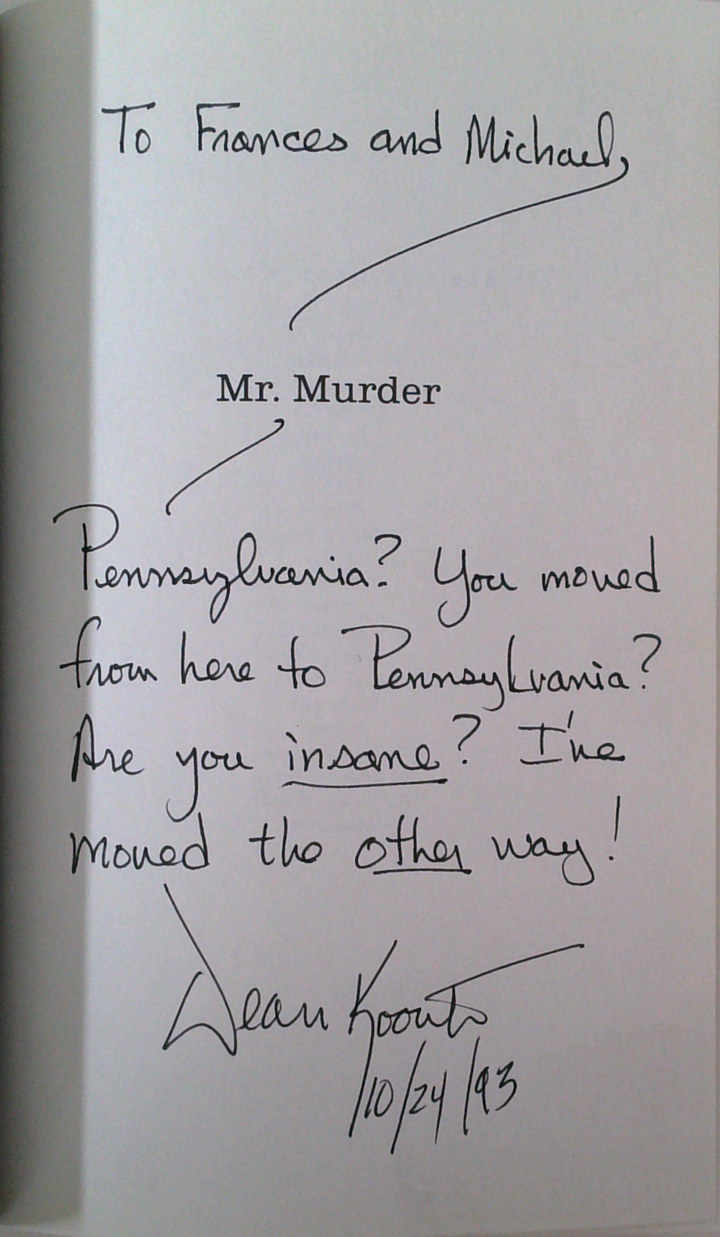 To Frances and Michael,
Mr. Murder
Pennsylvania? You moved
from here to Pennsylvania?
Are you insane? I've
moved the other way!
Dean Koontz
10/24/93